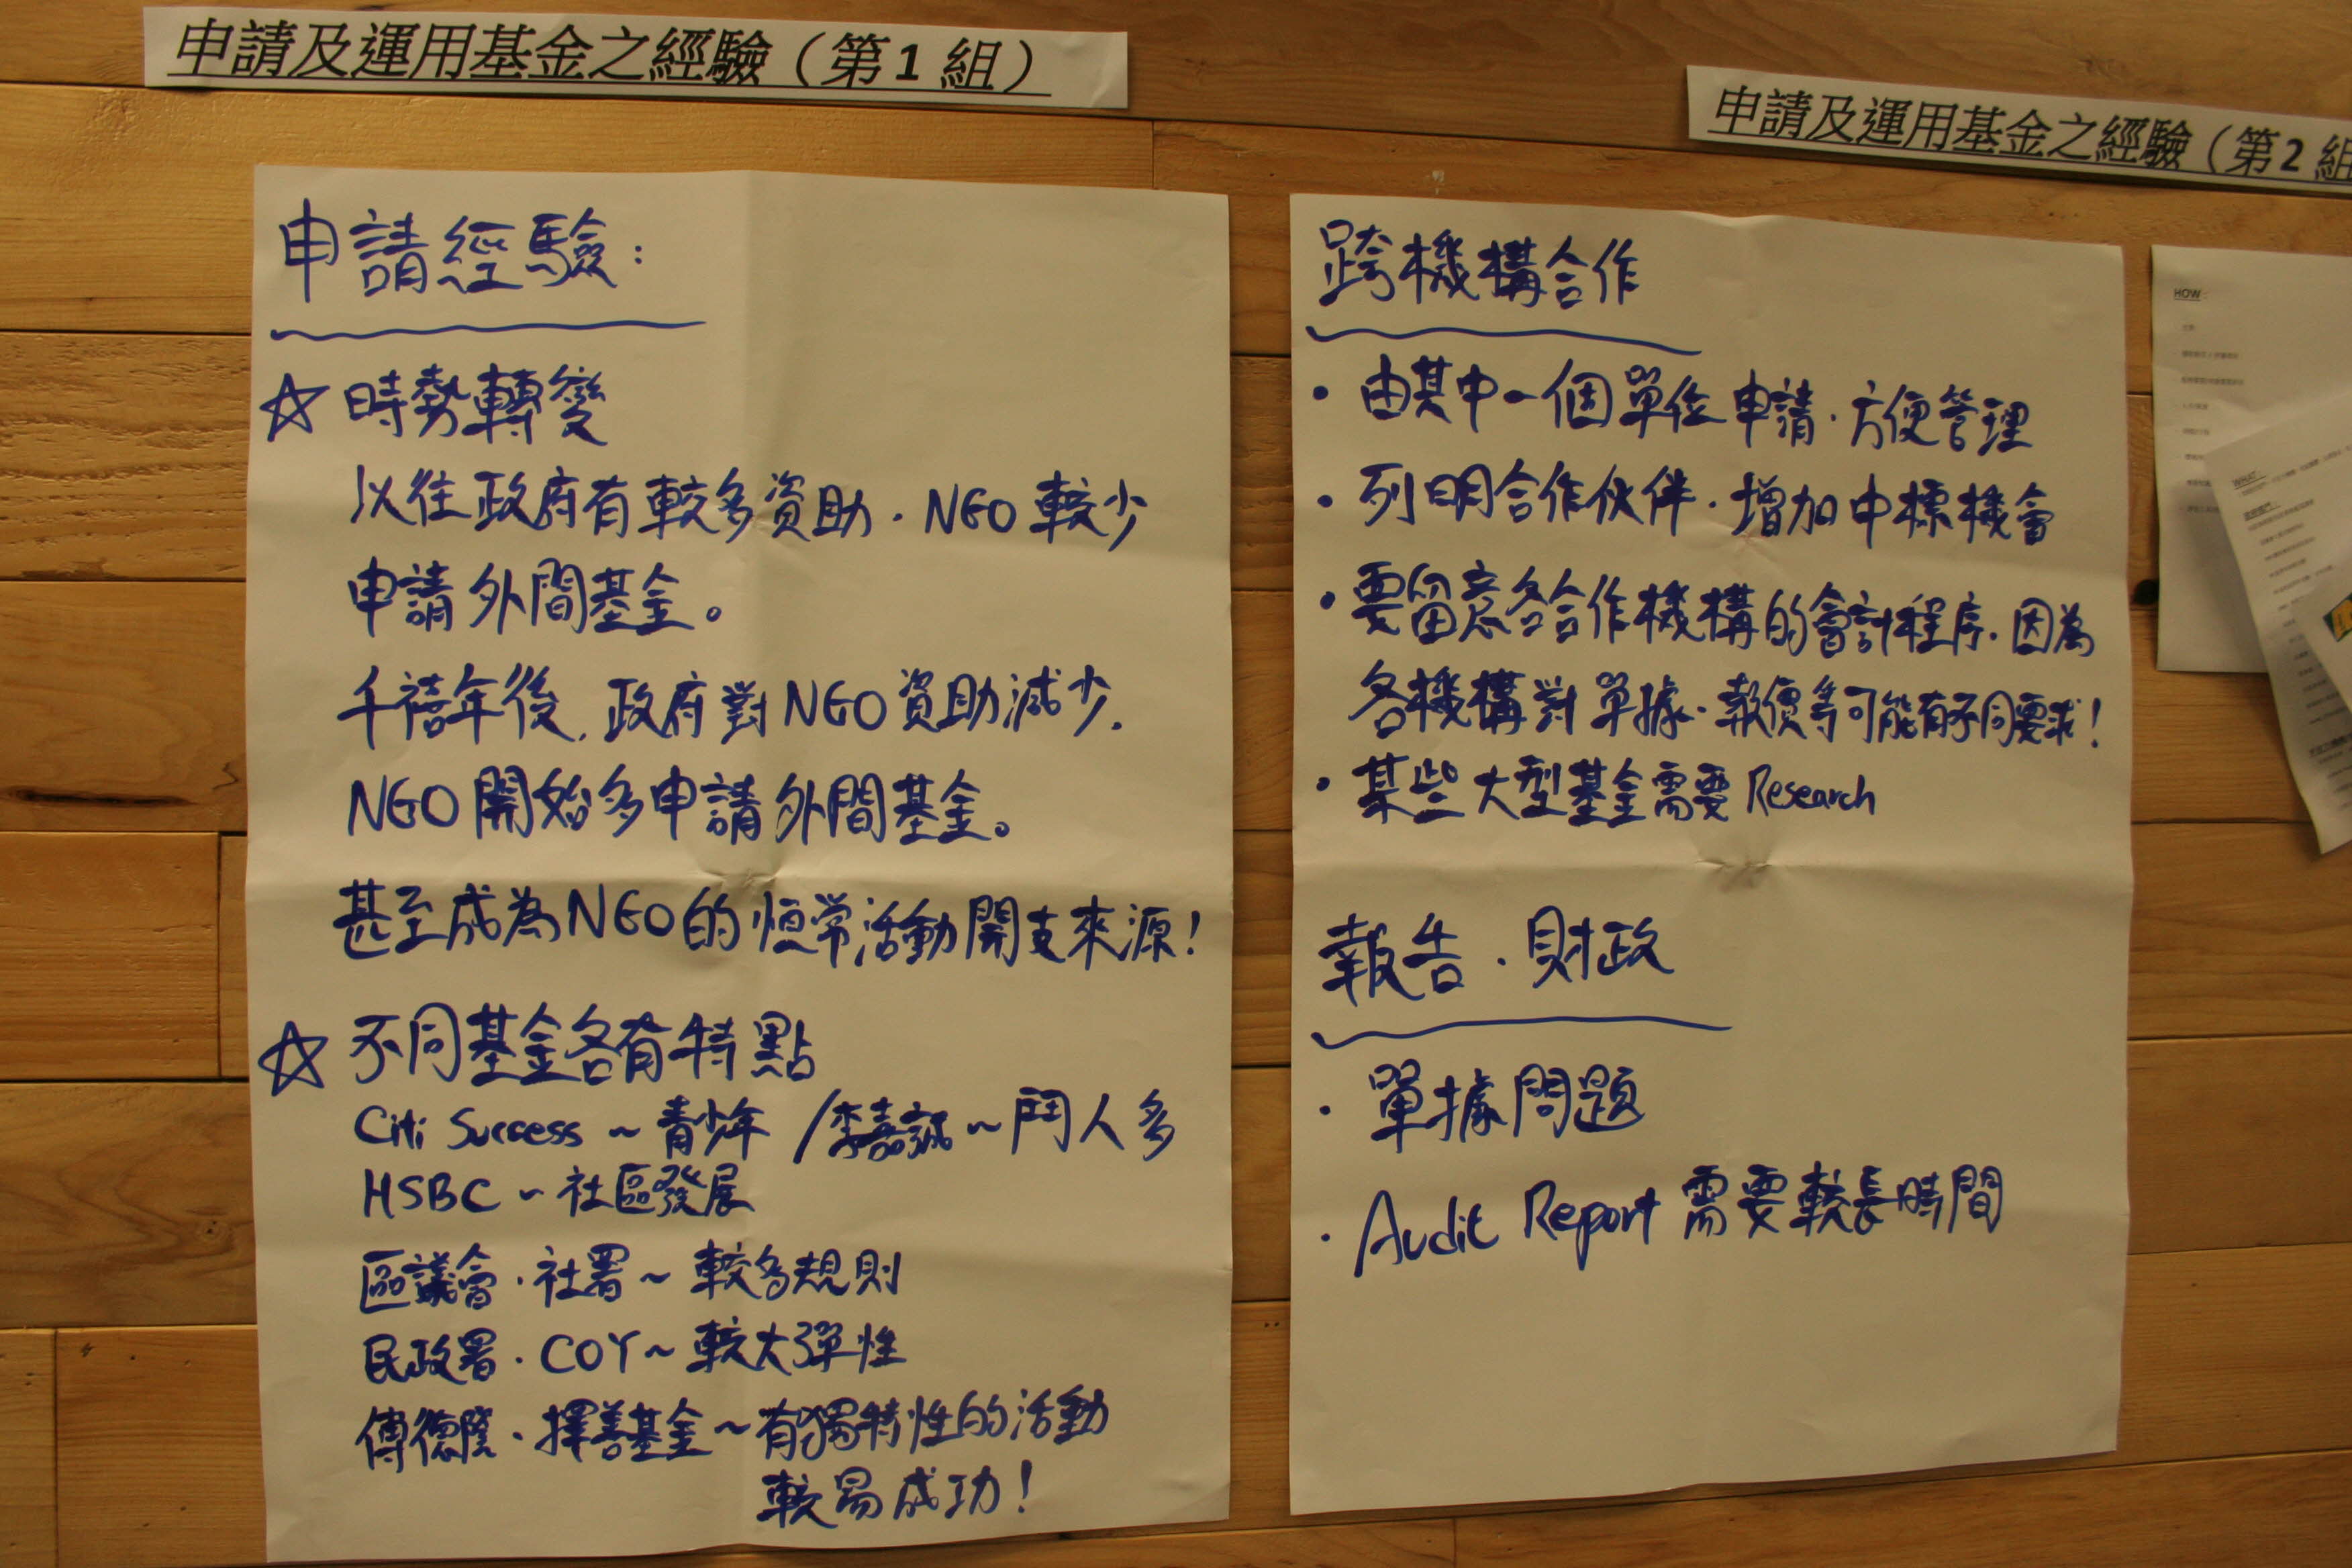 申請及運用基金之經驗（第1組）
申請經驗：
☆ 時勢轉變
以往政府有較多資助．NGO較少
申請外間基金。
千禧年後，政府對NGO資助減少，
NGO開始多申請外間基金。
甚至成為NGO的恒常活動開支來源！
☆ 不同基金各有特點
Citi Success ~ 青少年 /李嘉誠 ~ 鬥人多
HSBC ~ 社區發展
區議會．社署 ~ 較多規則
民政署．COY ~ 較大彈性
傅德蔭．擇善基金 ~ 有獨特性的活動
較易成功！
申請及運用基金之經驗（第2組
跨機構合作
• 由其中一個單位申請．方便管理
• 列明合作伙伴．增加中標機會
• 要留意各合作機構的會計程序．因為
各機構對單據．報價等可能有不同要求！
• 某些大型基金需要 Research
報告．財政
• 單據問題
• Audit Report 需要較長時間
HOW
WHAT